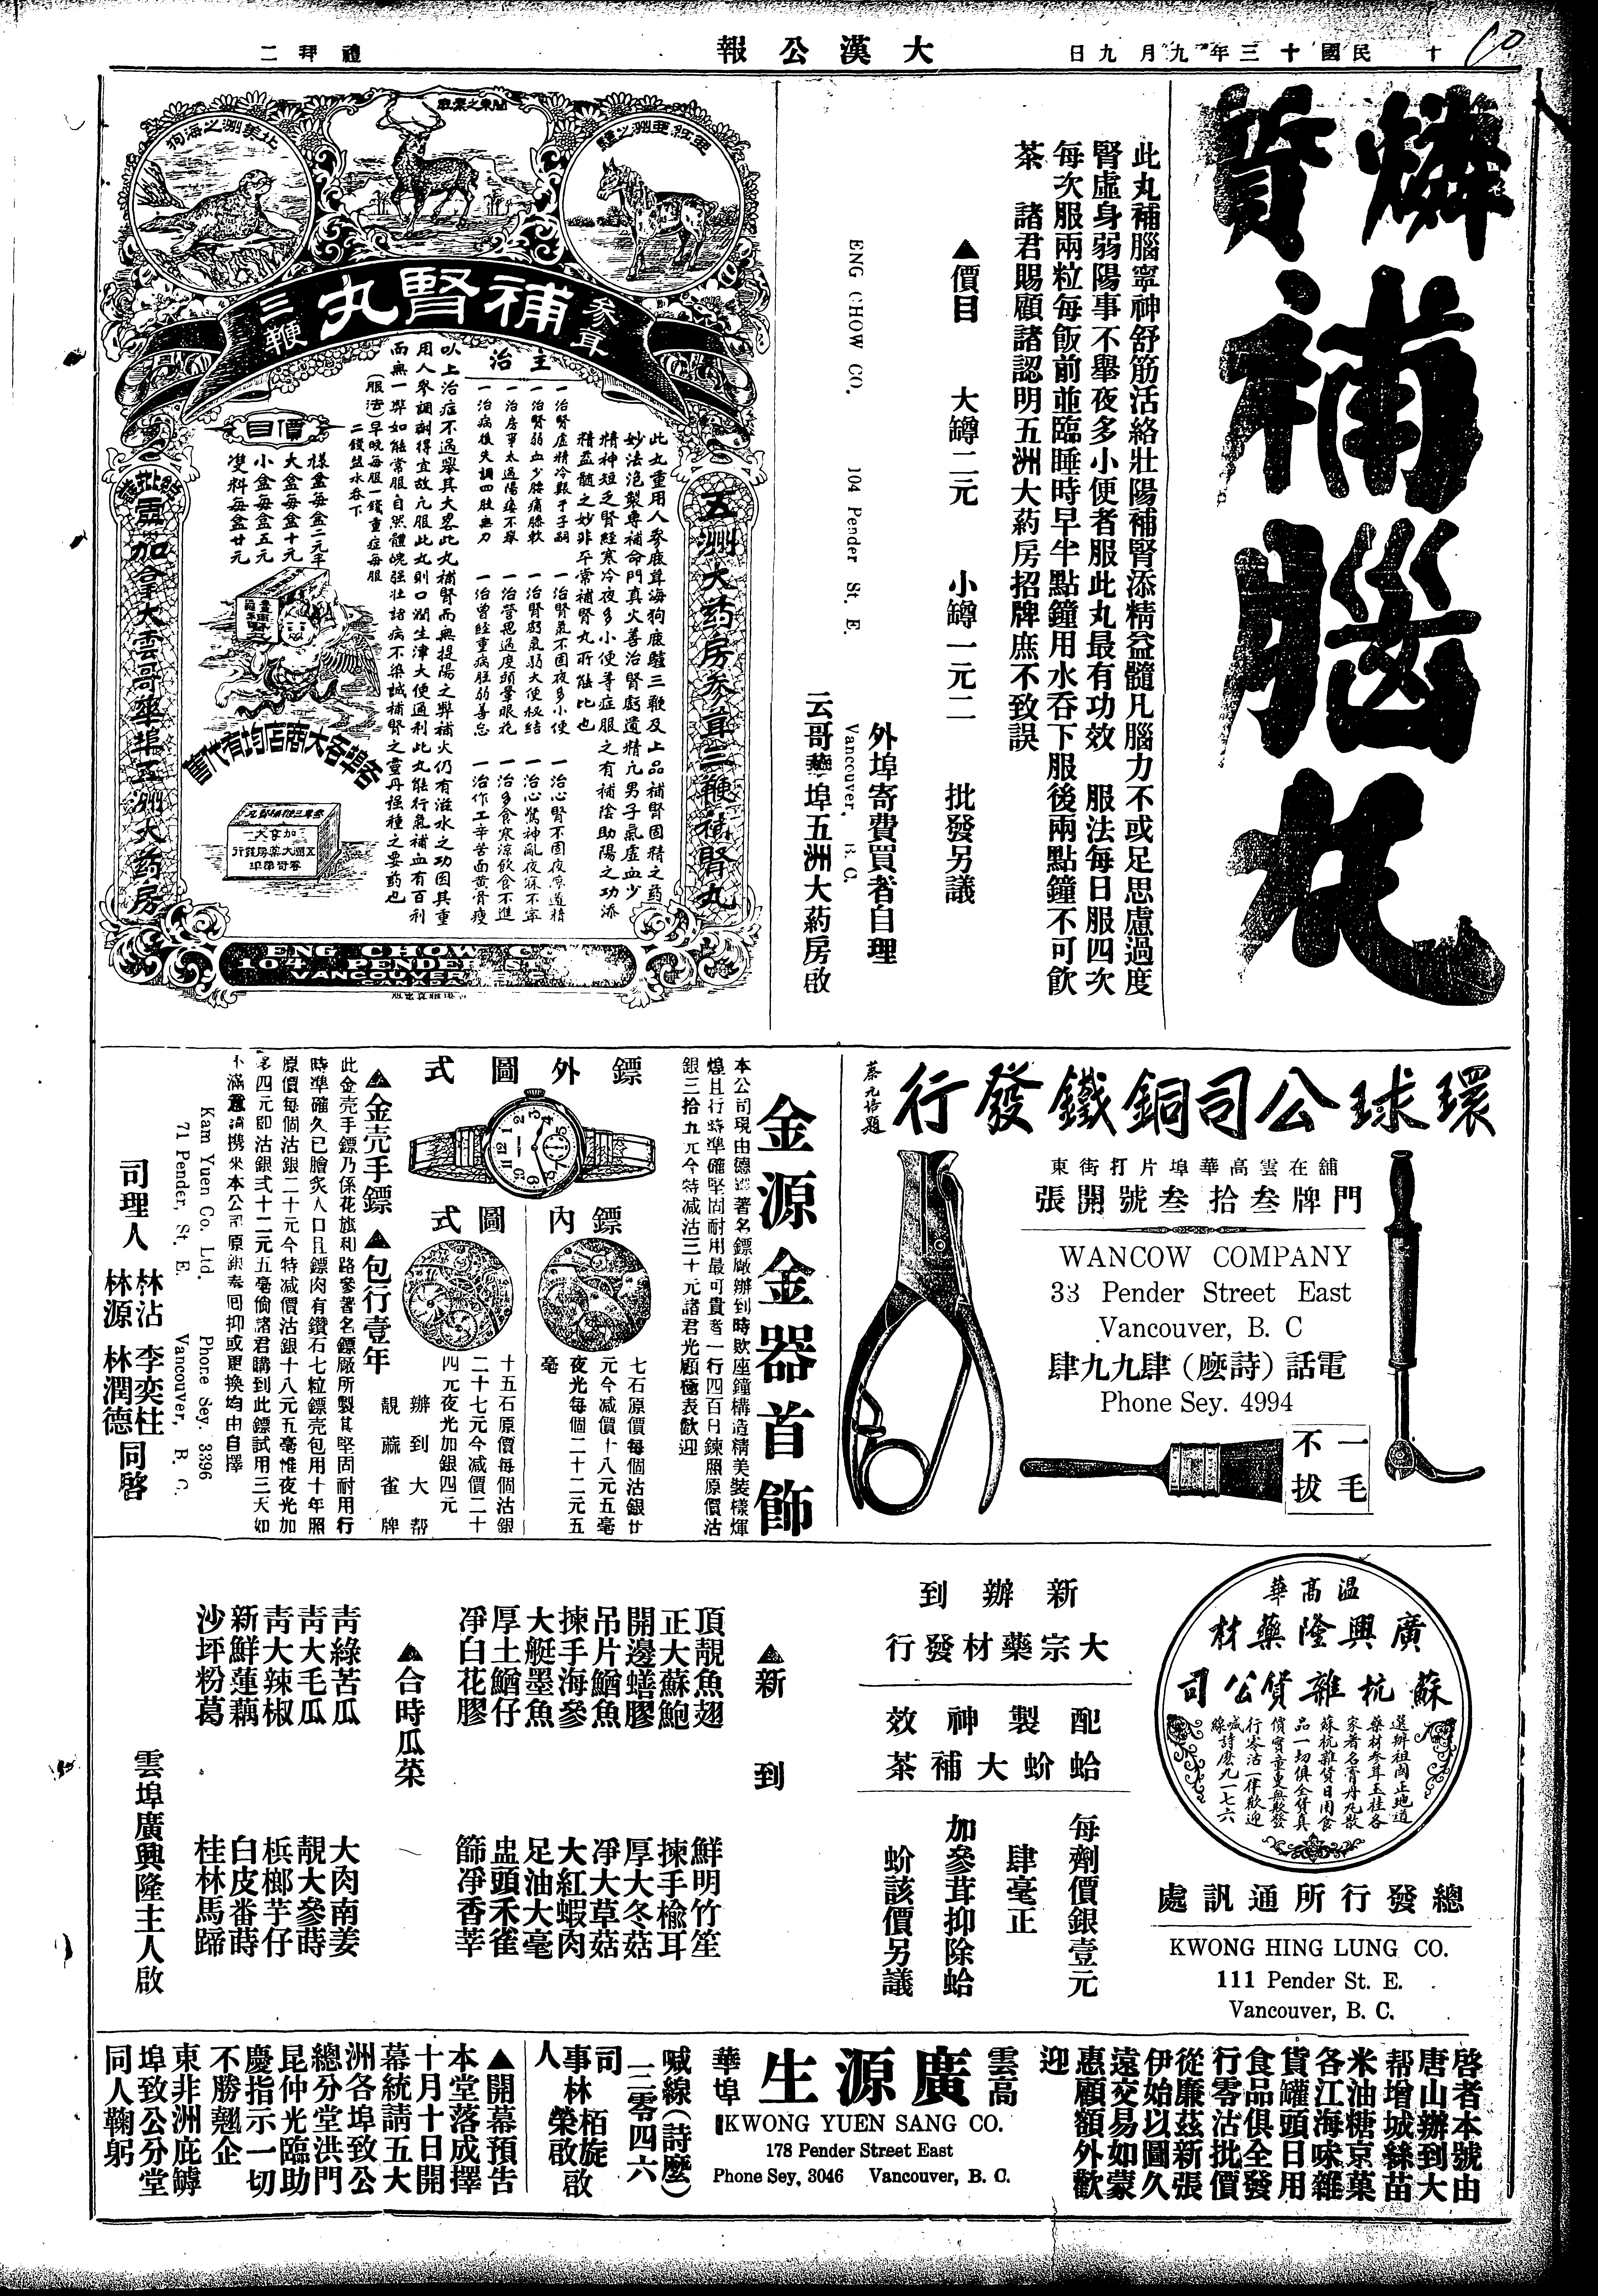 十
民國十三年九月九日
大漢公報
禮拜二
燐質
補腦丸
此丸補腦寧神舒筋活絡壯陽補腎添精益髓凡腦力不或足思慮過度
腎虛身弱陽事不舉夜多小便者服此丸最有功效 服法每日服四次
每次服兩粒每飯前並臨睡時早半點鐘用水吞下服後兩點鐘不可飲
茶 諸君賜顧諸認明五洲大葯房招牌庶不致誤
▲價目 大罇二元 小罇一元二 批發另議
外埠寄費買者自理
ENG CHOW CO. 104 Pender St. E. Vancouver, B. C.
云哥華埠五洲大葯房啟
亞細亞洲之驢
關東之鹿
北美洲之海狗
參茸
補腎丸
三鞭
五洲大葯房參茸三鞭補腎丸
此丸重用人參鹿茸海狗鹿驢三鞭及上品補腎固精之葯
妙法泡製專補命門真火善治腎虧遺精凡男子氣虛血少
精神短乏腎經寒冷夜多小便等症服之有補陰助陽之功添
精益髓之妙非平常補腎丸所能比也
主治
一治腎虛精冷艱于子嗣 一治腎氣不固夜多小便 一治心腎不固夜夢遺精
一治腎弱血少腰痛膝軟 一治腎虧氣弱大便秘結 一治心驚神亂夜寐不寧
一治房事太過陽痿不舉 一治營思過度頭暈眼花 一治多食寒涼飲食不進
一治病後失調四肢無力 一治曾經重病胜弱善忘 一治作工辛苦面黃骨瘦
以上治症不過舉其大畧此丸補腎而無提陽之弊補火仍有滋水之功因其重
用人參調制得宜故凡服此丸則口潤生津大便通利此丸能行氣補血有百利
而無一弊如能常服自然體魄强壯諸病不染誠補腎之靈丹强種之要葯也
(服法)早晚每服一錢重症每服
二錢鹽水吞下
價目
樣盒每盒二元半
大盒每盒十元
小盒每盒五元
雙料每盒廿元
各埠各大商店均有代售
總批發處加拿大雲哥華埠五洲大葯房
ENG CHOW CO.
104 PENDER ST. E.
VANCOUVER B.C.
CANADA
環球公司銅鐵發行
蔡元培題
舖在雲高華埠片打街東
門牌叁拾叁號開張
WANCOW COMPANY
33 Pender Street East
Vancouver, B. C
電話(詩麽)肆九九肆
Phone Sey. 4994
一毛
不拔
金源金器首飾
本公司現由德國著名鏢廠辦到時欵座鐘構造精美裝樣煇
煌且行時準確堅固耐用最可貴者一行四百日鍊照原價沽
銀三拾九元今特減沽三十元諸君光顧極表歡迎
鏢外圖式
鏢內圖式
七石原價每個沽銀廿
元今減價十八元五毫
夜光每個二十二元五
毫
十五石原價每個沽銀
二十七元今減價二十
四元夜光加銀四元
辦到大帮
靚蔴雀牌
▲金壳手鏢 ▲包行壹年
此金壳手鏢乃係花旗和路參著名鏢廠所製其堅固耐用行
時準確久已膾炙人口且鏢肉有鑽石七粒鏢壳包用十年照
原價每個沽銀二十元今特減價沽銀十八元五毫惟夜光加
多四元即沽銀弍十二元五毫倘諸君購到此鏢試用三天如
不滿意請携來本公司原銀奉囘抑或更換均由自擇
Kam Yuen Co. Ltd. Phone Sey. 3396
71 Pender, St. E. Vancouver, B. C.
司理人 林沾 李奕柱 林源 林潤德 同啓
温高華
廣興隆藥材
蘇杭雜貨公司
選辦祖國正地道
藥材參茸玉桂各
家著名膏丹丸散
蘇杭雜貨日用食
品一切俱全貨真
價實童叟無欺發
行零沽一律歡迎
喊線詩麽九一七六
總發行所通訊處
KWONG HING LUNG CO.
111 Pender St. E.
Vancouver, B. C.
新辦到
大宗藥材發行
配製神效
蛤蚧大補茶
每劑價銀壹元
肆毫正
加參茸抑除蛤
蚧該價另議
▲新到
頂靚魚翅 鮮明竹笙
正大蘇鮑 揀手榆耳
開邊蟮膠 厚大冬菇
吊片鰌魚 凈大草菇
揀手海參 大紅蝦肉
大艇墨魚 足油大毫
厚土鰌仔 盅頭禾雀
凈白花膠 篩凈香莘
▲合時瓜菜
靑綠苦瓜 大肉南姜
靑大毛瓜 靚大參蒔
靑大辣椒 梹榔芋仔
新鮮蓮藕 白皮番蒔
沙坪粉葛 桂林馬蹄
雲埠廣興隆主人啟
啓者本號由
唐山辦到大
帮增城絲苗
米油糖京菓
各江海味雜
貨罐頭日用
食品俱全發
行零沽批價
從廉茲新張
伊始以圖久
遠交易如蒙
惠顧額外歡
迎
雲高
廣源生
華埠
KWONG YUEN SANG CO.
178 Pender Street East
Phone Sey, 3046 Vancouver, B. C.
喊線(詩麽)
三零四六
司事人 林栢旋 榮啟 啟
▲開幕預告
本堂落成擇
十月十日開
幕統請五大
洲各埠致公
總分堂洪門
昆仲光臨助
慶指示一切
不勝翹企
東非洲庇罅
埠致公分堂
同人鞠躬